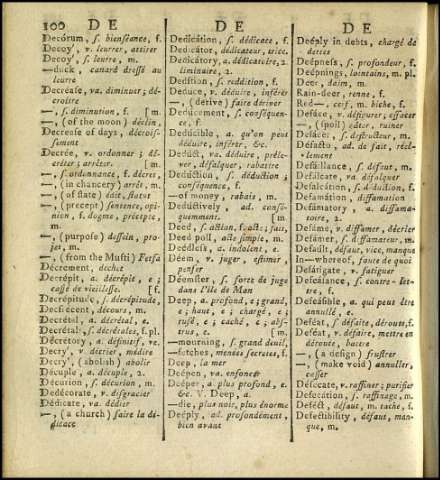 100 D E
Decórum, ſ. bienſéance, f.
Decoy', v. leurrer, attirer
Decoy', ſ. leurre, m.
—duck, canard dreſſé au
leurre
Decréaſe, va. diminuer; dé-
croître
—, ſ. diminution, f. [m.
—, (of the moon) déclin,
Decreaſe of days, décroiſ-
ſement
Decrée, v. ordonner; dé-
créter; arrêter [m.
—, ſ. ordonnance, f. décret,
—, (in chancery) arrêt, m.
—, (of ſtate) édit, ſtatut
—, (precept) ſentence, opi-
nion, f. dogme, précepte,
m.
—, (purpoſe) deſſein, pro-
jet, m.
—, (from the Mufti) Fetfa
Décrement, déchet
Décrepit, a. décrépit, e;
caſſé de vieilleſſe. [f.
Decrépitude, ſ. décrépitude,
Decréscent, décours, m.
Decrétal, a. décrétal, e.
Decrétal, ſ. décrétales, f. pl.
Décretory, a. définitif, ve.
Decry', v. décrier, médire
Decry', (aboliſh) abolir
Décuple, a. décuple, 2.
Décurion, ſ. décurion, m.
Dedécorate, v. diſgracier
Dédicate, va. dédier
—, (a church) faire la dé-
dicace
D E
Dedicátion, ſ. dédicace, f.
Dedicátor, dédicateur, trice.
Dédicatory, a. dédicatoire, 2.
liminaire, 2.
Dedítion, ſ. reddition, f.
Deduce, v. déduire, inférer
—, (derive) faire dériver
Dedúcement, ſ. conſéquen-
ce, f.
Dedúcible, a. qu'on peut
déduire, inférer, &c.
Dedúct, va. déduire, préle-
ver, défalquer, rabattre
Dedúction, ſ. déduction;
conſéquence, f.
—of money, rabais, m.
Dedúctively, ad. conſé-
quemment. [m.
Deed, ſ. action, f. acte; fait,
Deed poll, acte ſimple, m.
Deedleſs, a. indolent, e.
Déem, v. juger, eſtimer,
penſer
Déemſter, ſ. ſorte de juge
dans l'iſle de Man
Deep, a. profond, e; grand,
e; haut, e; chargé, e;
ruſé, e; caché, e; abſ-
trus, e. [m.
—mourning, ſ. grand deuil,
—fetches, menées ſecretes, f.
Deep, la mer
Deépen, va. enfoncer
Deéper, a. plus profond, e.
&c. V. Deep, a.
—die, plus noir, plus énorme
Deéply, ad. profondément,
bien avant
D E
Deéply in debts, chargé de
dettes
Deépneſs, ſ. profondeur, f.
Deépnings, lointains, m. pl.
Deer, daim, m.
Rain-deer, renne, f.
Red—, cerf, m. biche, f.
Deface, v. défigurer, effacer
—, (ſpoil) gâter, ruiner
Défacer, ſ. deſtructeur, m.
Défacto, ad. de fait, réel-
lement
Defáilance, ſ. défaut, m.
Defalcate, va. défalquer
Defalcátion, ſ. déduction, f.
Defamátion, diffamation
Defámatory, a. diffama-
toire, 2.
Defáme, v. diffamer, décrier
Defámer, ſ. diffamateur, m.
Defáult, défaut, vice, manque
In—whereof, faute de quoi
Defátigate, v. fatiguer
Defeáſance, ſ. contre-let-
tre, f.
Defeáſible, a. qui peut être
annullé, e.
Deféat, ſ. défaite, déroute, f.
Deféat, v. défaire, mettre en
déroute, battre
—, (a deſign) fruſtrer
—, (make void) annuller,
caſſer
Défecate, v. raffiner; purifier
Defecátion, ſ. raffinage, m.
Deféct, défaut, m. tache, f.
Defectibility, défaut, man-
que, m.